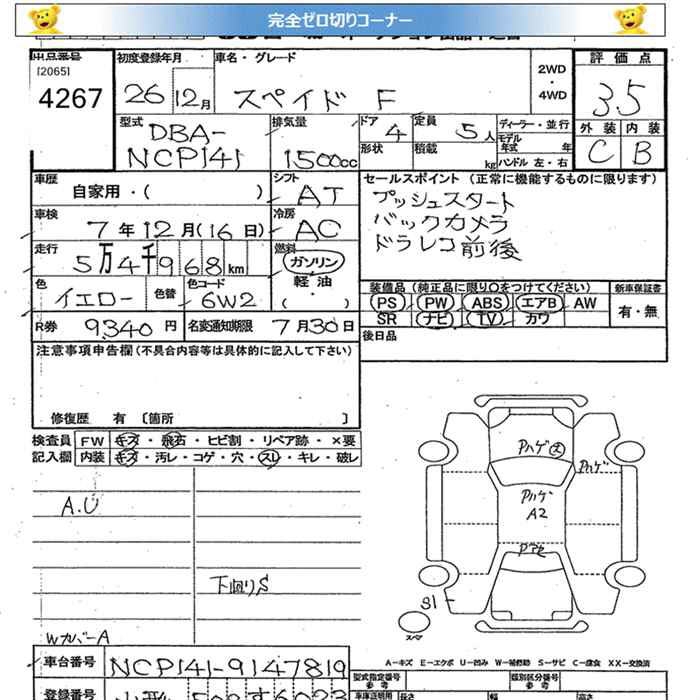 完全ゼロ切りコーナー
出品番号 初度登録年月 車名・グレード 2WD・4WD 評価点
[2065]
4267 26 12月 スペイド F 3.5
型式 DBA-NCP141 排気量 1500cc ドア 4 定員 5人 ディーラー・並行 外装 内装
形状 積載 kg モデル年式 年 ハンドル 左・右 C B
車歴 自家用・( ) シフト AT セールスポイント (正常に機能するものに限ります)
車検 7年12月(16日) 冷房 AC プッシュスタート
バックカメラ
ドラレコ前後
走行 5万4千968km 燃料 ガソリン
軽油
( ・ )
色 イエロー 色替 色コード 6W2 装備品 (純正品に限り○をつけてください) 新車保証書
PS PW ABS エアB AW 有・無
SR ナビ TV カワ
R券 9340円 名変通知期限 7月30日 後日品
注意事項申告欄(不具合内容等は具体的に記入して下さい)
修復歴 有 〔箇所 〕
検査員 FW キズ・飛石・ヒビ割・リペア跡・×要
記入欄 内装 キズ・汚レ・コゲ・穴・スレ・キレ・破レ
A.U
下回りS
WカバーA
Pハゲ大
Pハゲ
Pハゲ
A2
S1
スマ
A-キズ E-エクボ U-凹み W-補修跡 S-サビ C-腐食 XX-交換済
車台番号 NCP141-9147819
型式指定番号 参考 類別区分番号 参考
登録番号 長さ 幅 高さ